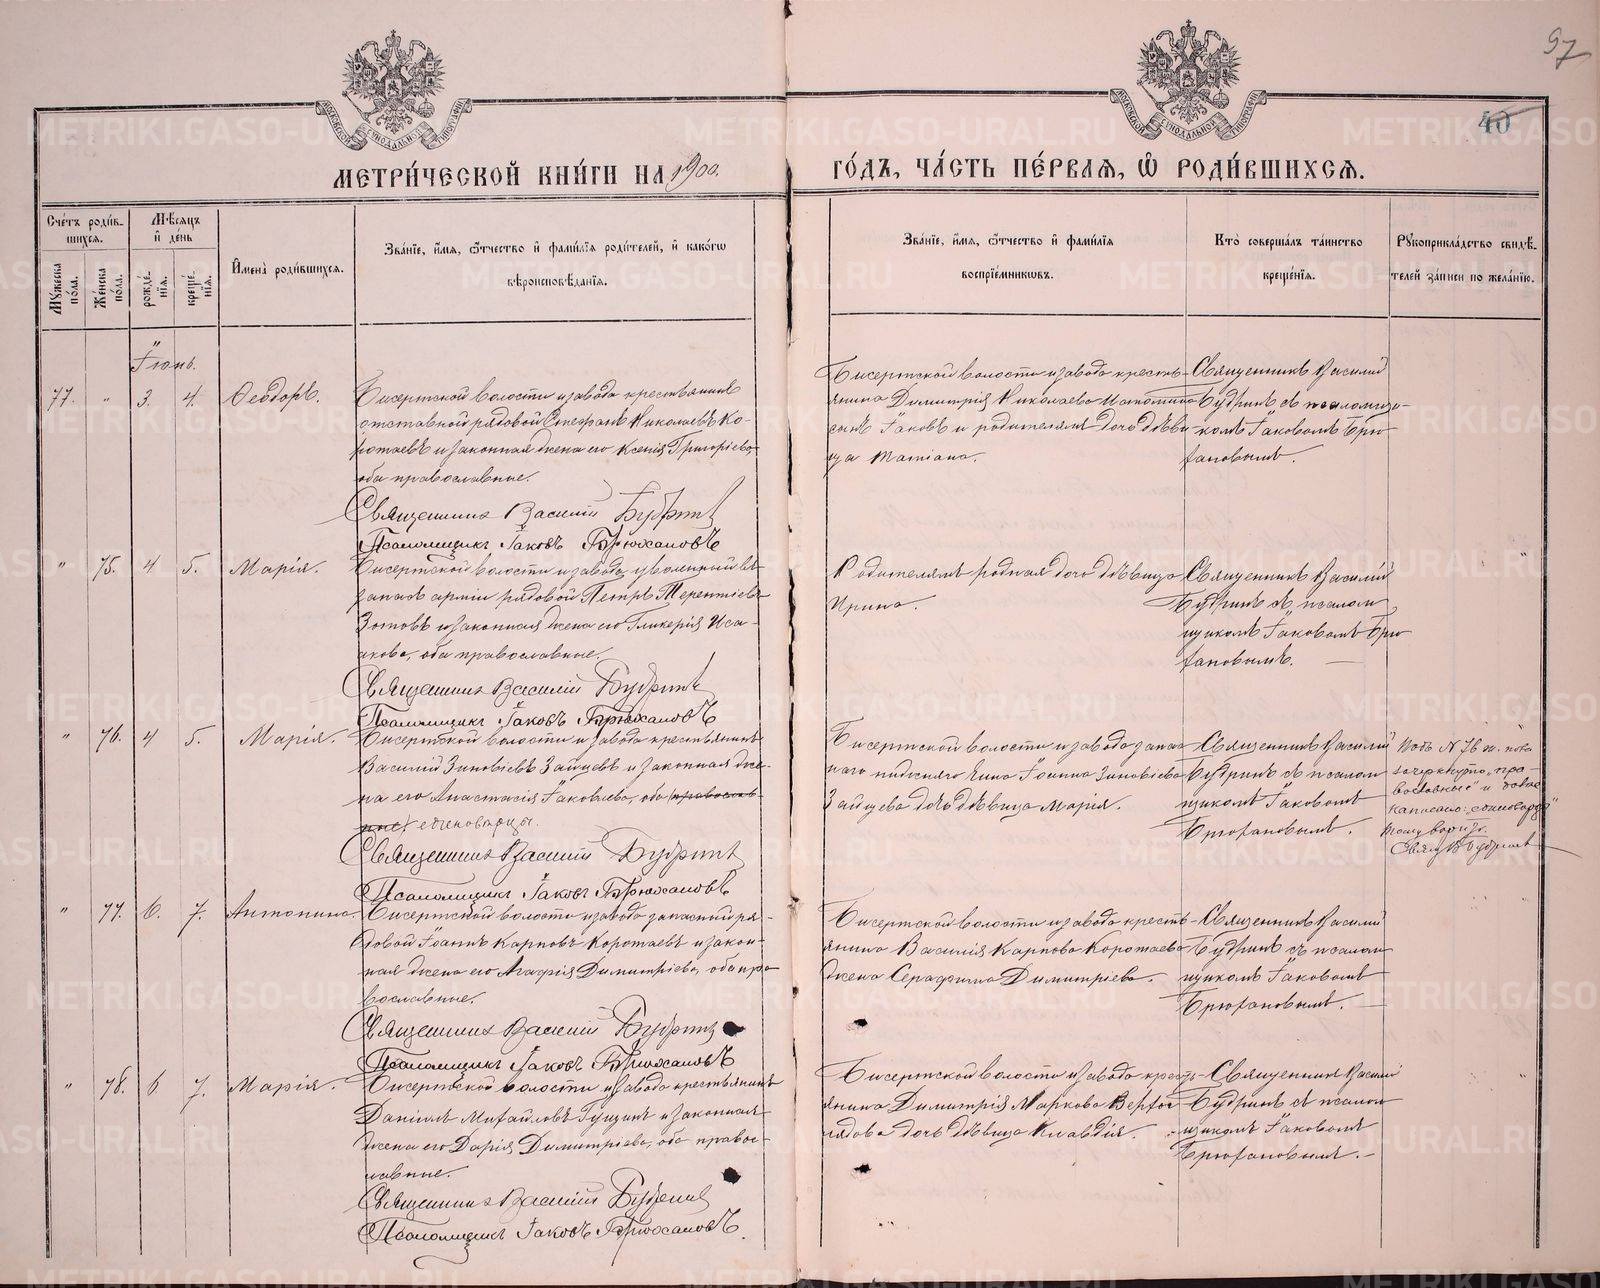 97
40
МОСКОВСКОЙ СѴНОДАЛЬНОЙ ТИПОГРАФІИ
МОСКОВСКОЙ СѴНОДАЛЬНОЙ ТИПОГРАФІИ
МЕТРИ́ЧЕСКОЙ КНИ́ГИ НА 1900.
ГО́ДЪ, ЧА́СТЬ ПЕ́РВАѦ, Ѽ РОДИ́ВШИХСѦ.
Сче́тъ роди́в-
шихсѧ.
Мꙋ́жеска по́ла.
Же́нска по́ла.
Мѣ́сѧцъ и҆ де́нь
рожде́-нїѧ.
креще́-нїѧ.
И҆мена̀ роди́вшихсѧ.
Зва́нїе, и҆́мѧ, ѻ҆́тчество и҆ фами́лїѧ роди́телей, и҆ како́гѡ
вѣроисповѣ́данїѧ.
Зва́нїе, и҆́мѧ, ѻ҆́тчество и҆ фами́лїѧ
воспрїе́мникѡвъ.
Кто̀ соверша́лъ та́инство
креще́нїѧ.
Рꙋкоприкла́дство свидѣ́-
телей за́писи по жела́нїю.
Іюнь.
77. " 3. 4. Ѳеодоръ.
Бисертской волости и завода крестьянинъ
отставной рядовой Стефанъ Николаевъ Ко-
ротаевъ и законная жена его Ксенія Григоріева,
оба православные.
Священникъ Василій Будринъ
Псаломщикъ Іаковъ Брюхановъ
Бисертской волости и завода кресть-
янина Димитрія Николаева
сынъ Іаковъ и родителямъ дочь дѣви-
ца Татіана.
Священникъ Василій
Будринъ съ псаломщи-
комъ Іаковомъ Брю-
хановымъ.
" 75. 4 5. Марія.
Бисертской волости и завода, уволенный въ
запасъ арміи рядовой Петръ Терентіевъ
Зотовъ и законная жена его Гликерія Иса-
акова, оба православные.
Священникъ Василій Будринъ
Псаломщикъ Іаковъ Брюхановъ
Родителямъ родная дочь дѣвица
Ирина.
Священникъ Василій
Будринъ съ псалом
щикомъ Іаковомъ Брю
хановымъ.
" 76. 4 5. Марія.
Бисертской волости и завода крестьянинъ
Василій Зиновіевъ Зайцевъ и законная же-
на его Анастасія Іаковлева, оба православ-
ные единоверцы.
Священникъ Василій Будринъ
Псаломщикъ Іаковъ Брюхановъ
Бисертской волости и завода запас
наго Іоанна Зиновіева
Зайцева дочь дѣвица Марія.
Священникъ Василій
Будринъ съ псалом
щикомъ Іаковомъ
Брюхановымъ.
Подъ № 76 ж. пола
зачеркнуто "пра-
вославные" и
написано: "единоверцы"
Свящ. В. Будринъ
" 77. 6. 7. Антонина.
Бисертской волости и завода запасный ря-
довой Іоаннъ Карповъ Коротаевъ и закон-
ная жена его Агафія Димитріева, оба пра
вославные.
Священникъ Василій Будринъ
Псаломщикъ Іаковъ Брюхановъ
Бисертской волости и завода кресть-
янина Василія Карпова Коротаева
жена Серафима Димитріева.
Священникъ Василій
Будринъ съ псалом
щикомъ Іаковомъ
Брюхановымъ.
" 78. 6 7. Марія.
Бисертской волости и завода крестьянинъ
Даніилъ Михайловъ Гущинъ и законная
жена его Дарія Димитріева, оба право-
славные.
Священникъ Василій Будринъ
Псаломщикъ Іаковъ Брюхановъ.
Бисертской волости и завода кресть-
янина Димитрія Маркова Верхо-
лядова дочь дѣвица Клавдія.
Священникъ Василій
Будринъ съ псалом
щикомъ Іаковомъ
Брюхановымъ.
METRIKI.GASO-URAL.RU